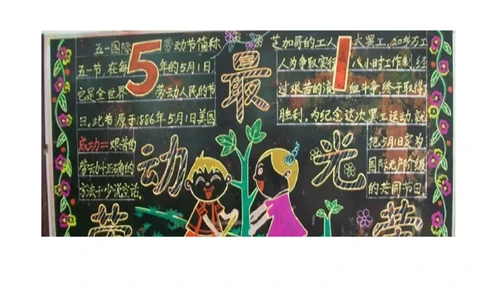 五一国际劳动节简称
五一节，在每年的5月1日
它是全世界劳动人民的节
日。此节源于1886年5月1美国
芝加哥的工人大罢工，20多万工
人为争取实行八小时工作制，经
过艰苦的流血斗争，终于取得
胜利，为纪念这次罢工运动，就
把5月1日定为
国际无产阶级
的共同节日。
5 1
劳动最光荣
成功=艰苦的
劳动+正确的
方法+少说空话。